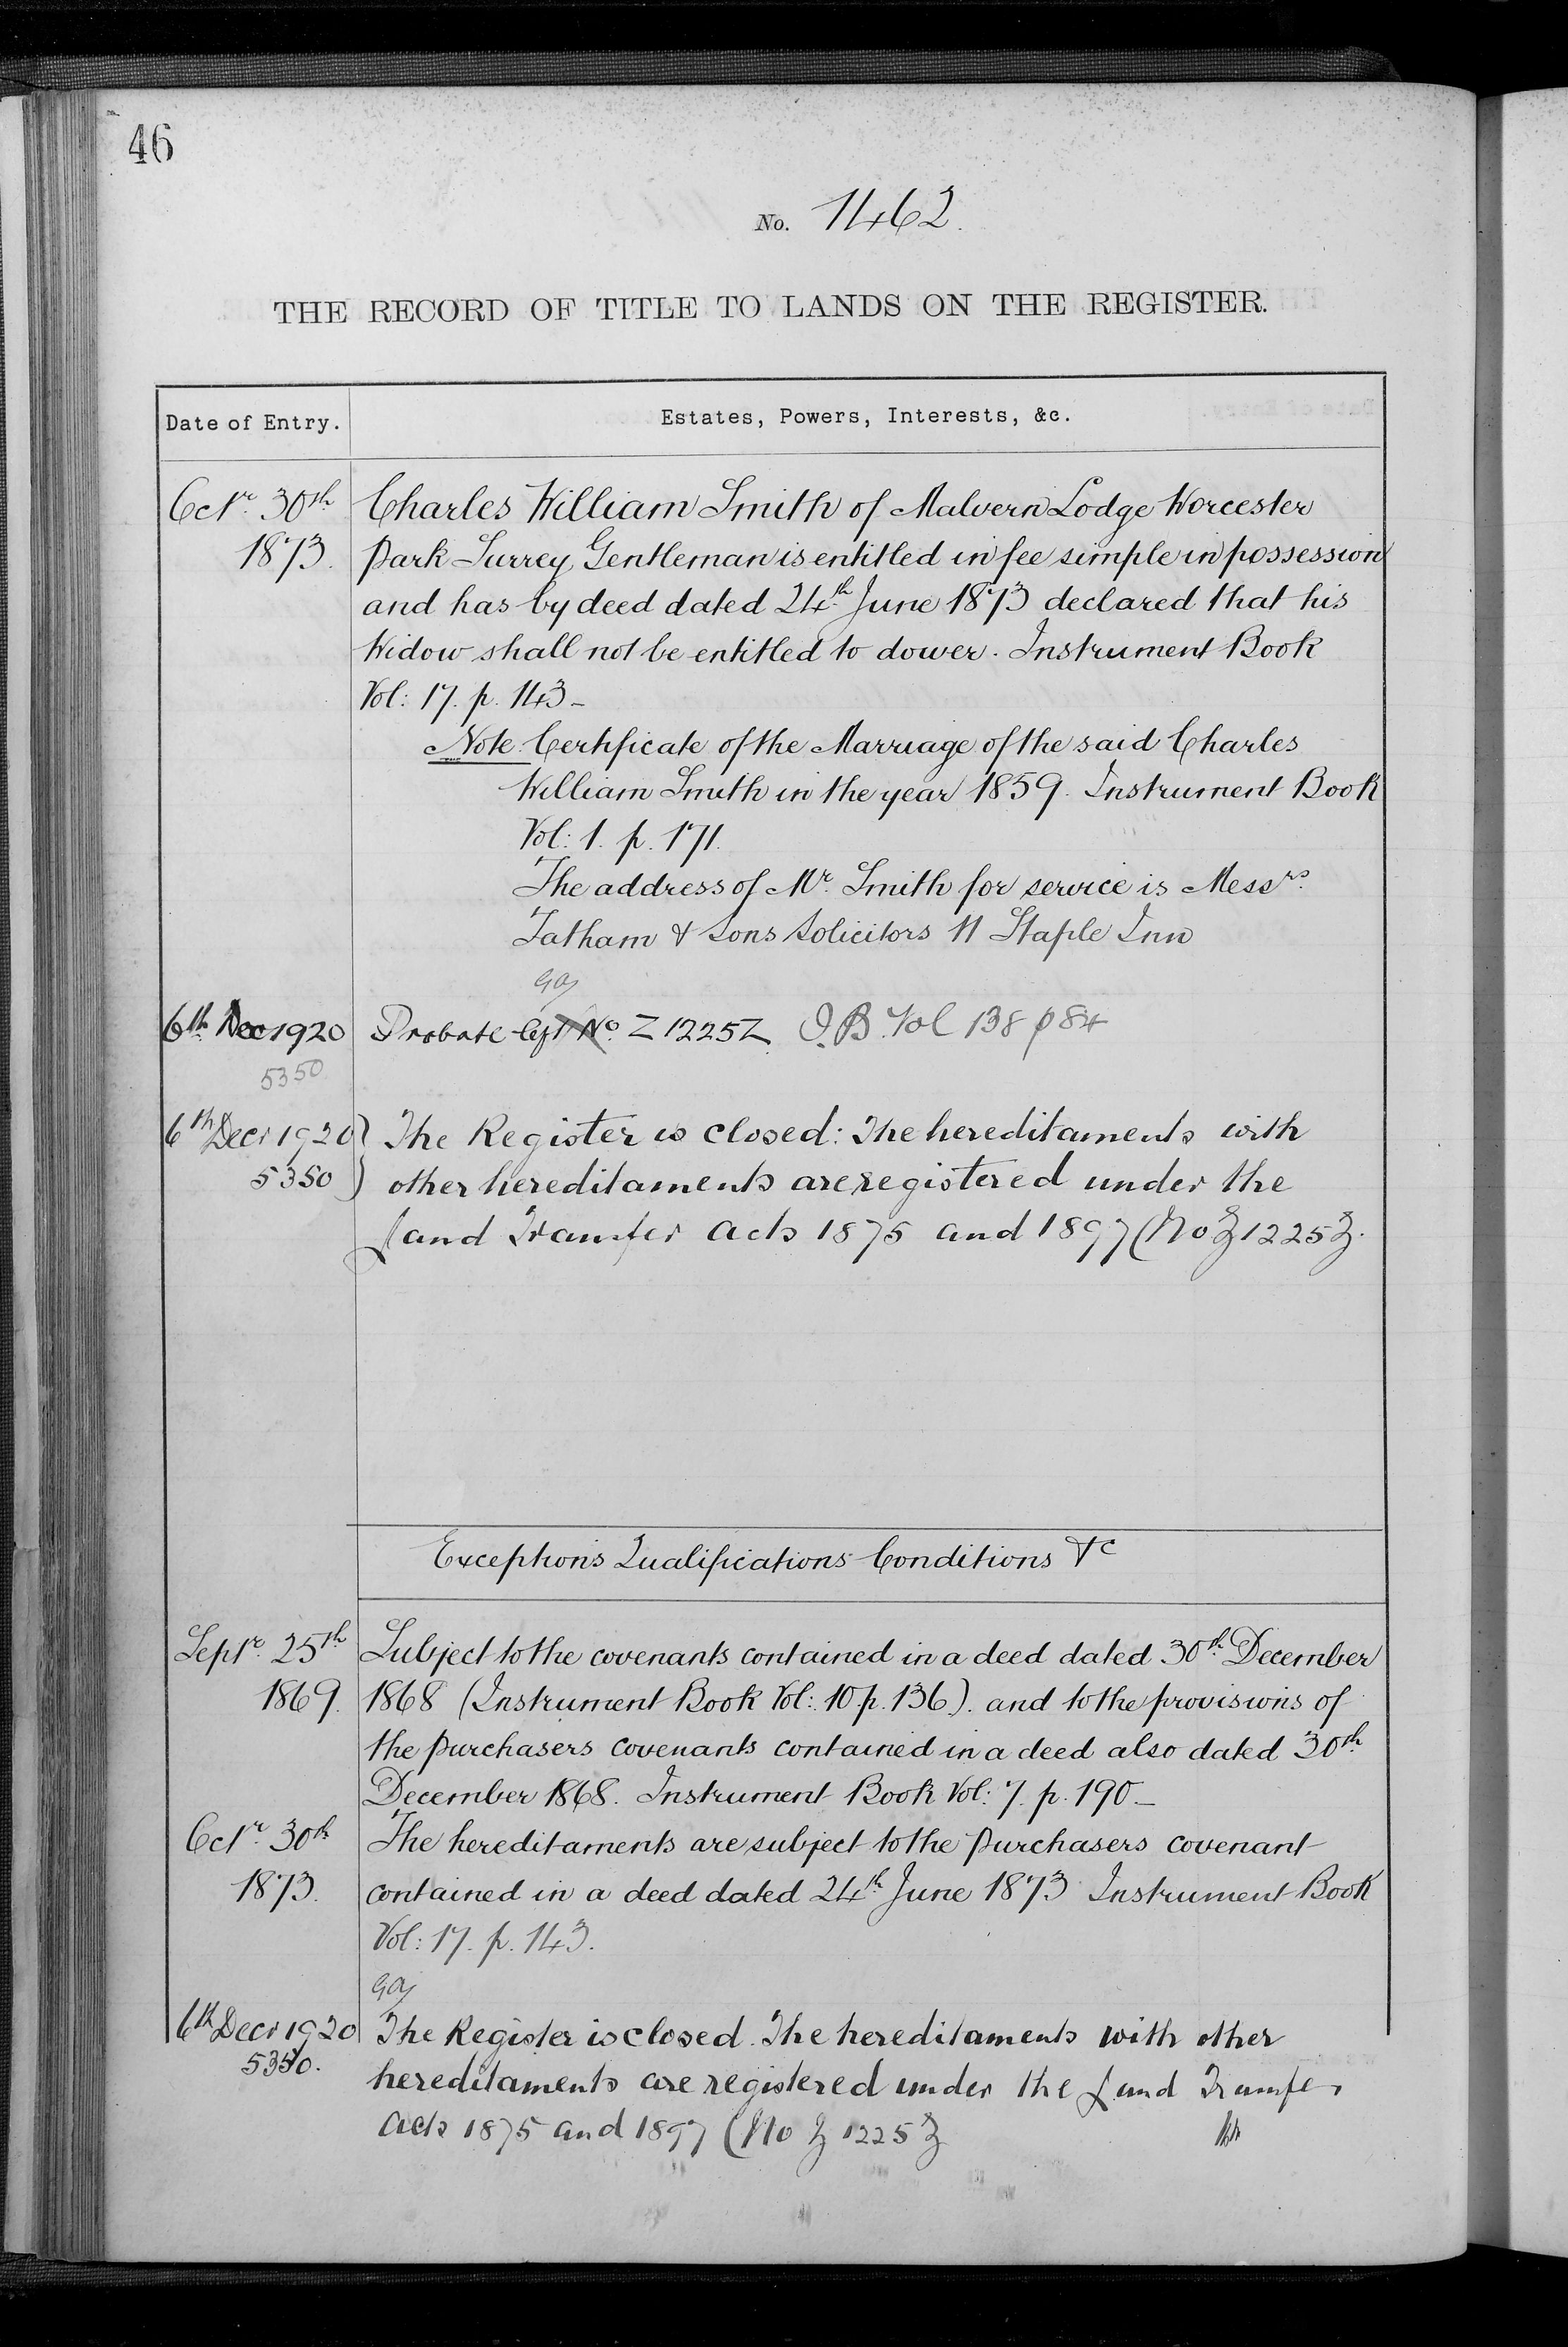 46
No. 1462.
THE RECORD OF TITLE TO LANDS ON THE REGISTER.
Date of Entry.
Estates, Powers, Interests, &c.
Octr. 30th Charles William Smith of Malvern Lodge Worcester
1873. Park Surrey Gentleman is entitled in fee simple in possession
and has by deed dated 24th June 1873 declared that his
Widow shall not be entitled to dower. Instrument Book
Vol: 17. p. 143 -
Note: Certificate of the Marriage of the said Charles
William Smith in the year 1859. Instrument Book
Vol: 1. p. 171.
The address of Mr. Smith for service is Messrs.
Tatham & Sons Solicitors 11 Staple Inn
6th Dec 1920 Probate No. Z 1225Z. I.B. Vol 138 p 84
5350
6th Decr 1920 } The Register is closed: The hereditaments with
5350 } other hereditaments are registered under the
Land Transfer Acts 1875 and 1897 (No Z 1225 Z.
Exceptions Qualifications Conditions &c
Septr. 25th Subject to the covenants contained in a deed dated 30th December
1869. 1868 (Instrument Book Vol: 10. p. 136). and to the provisions of
the purchasers covenants contained in a deed also dated 30th
December 1868. Instrument Book Vol: 7. p. 190 -
Octr. 30th The hereditaments are subject to the purchasers covenant
1873. contained in a deed dated 24th June 1873 Instrument Book
Vol: 17. p. 143.
6th Decr 1920 The Register is closed. The hereditaments with other
5350. hereditaments are registered under the Land Transfer
Acts 1875 and 1897 (No Z 1225 Z